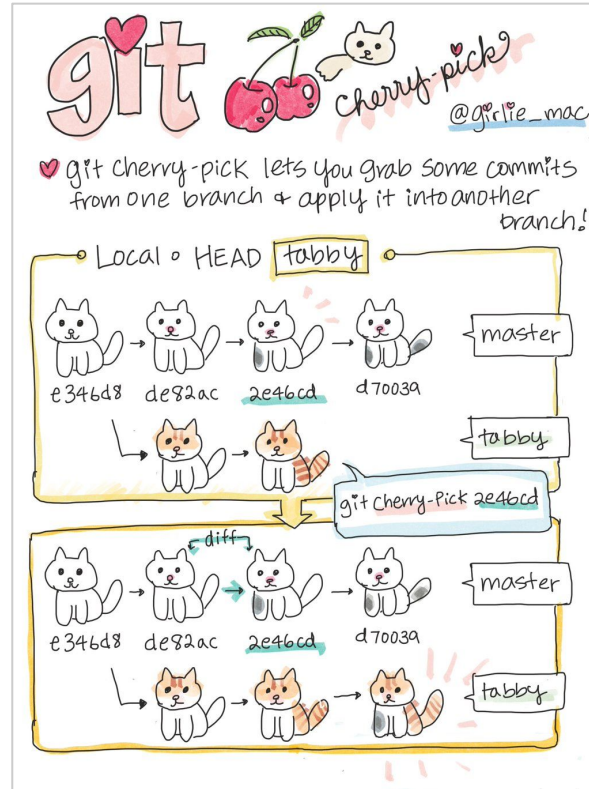 git cherry-pick
@girlie_mac
git cherry-pick lets you grab some commits
from one branch & apply it into another
branch!
Local • HEAD tabby
master
e346d8 de82ac 2e46cd d70039
tabby
git cherry-pick 2e46cd
diff
master
e346d8 de82ac 2e46cd d70039
tabby